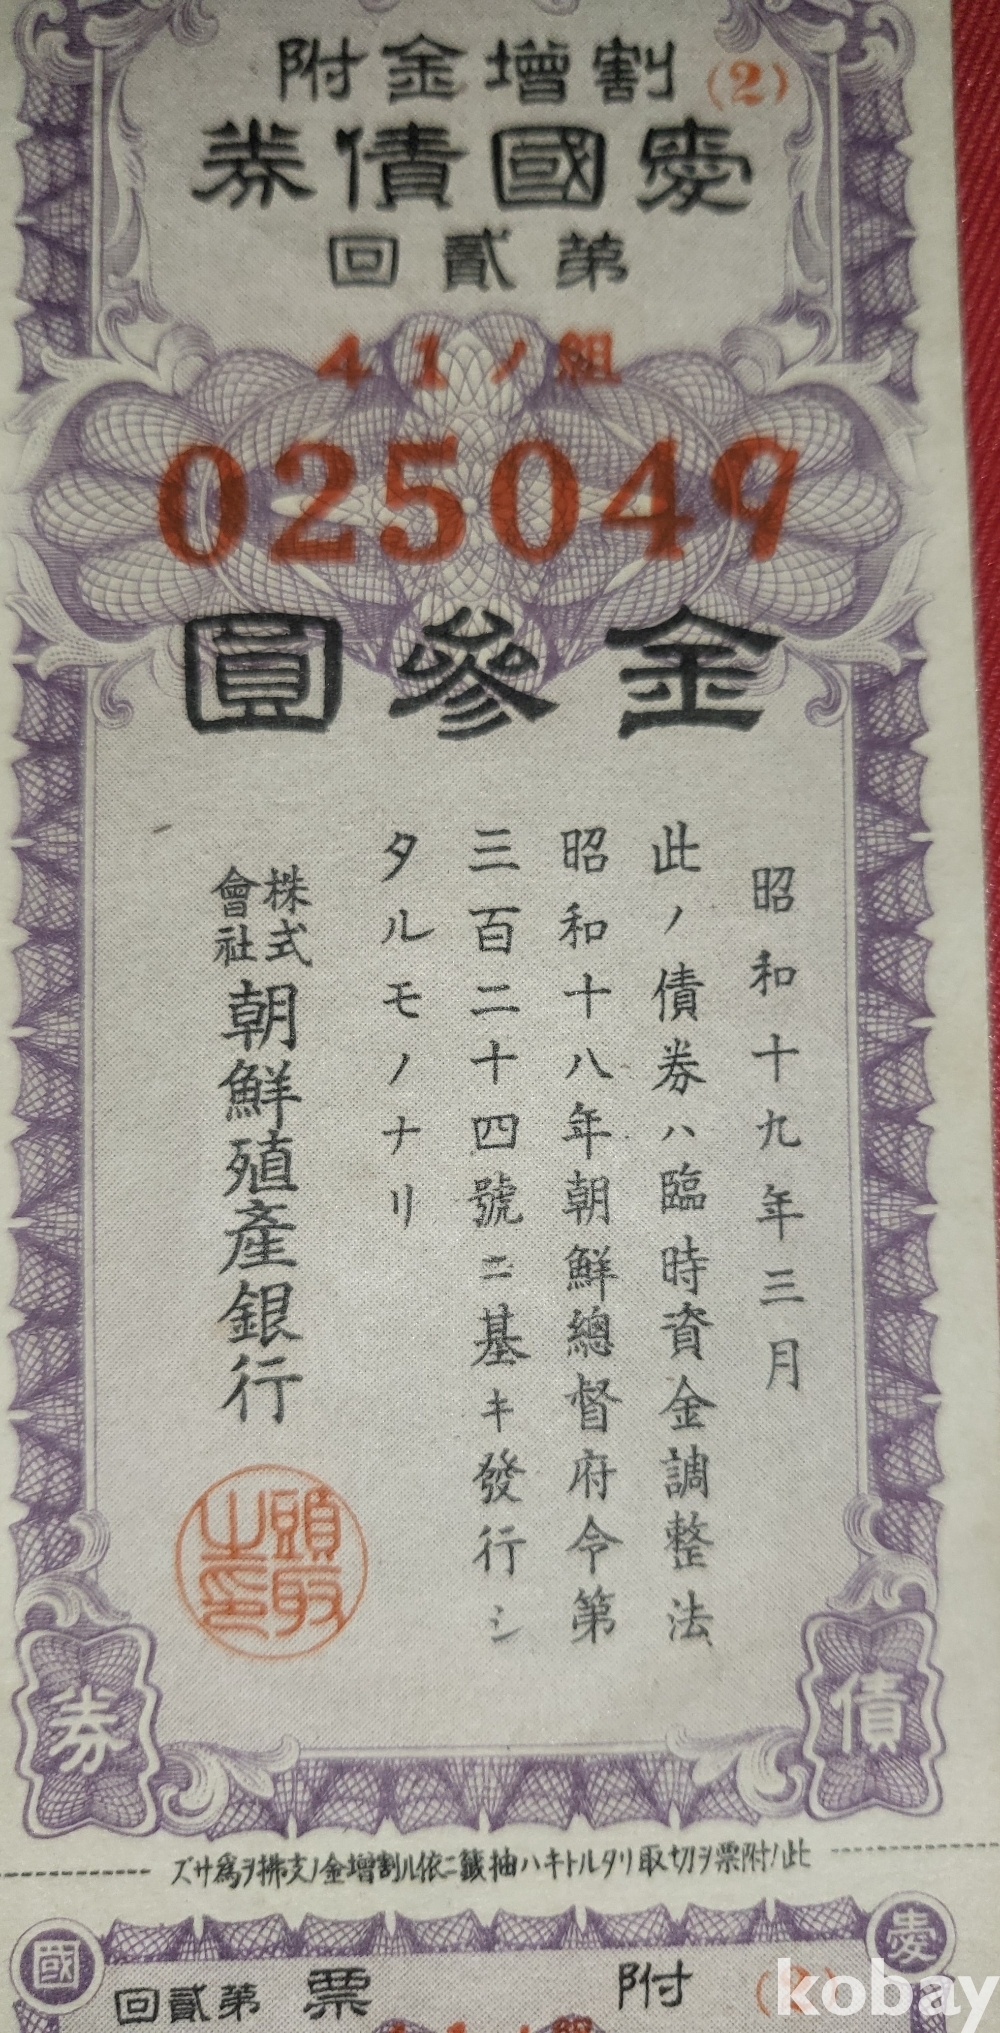 割增金附
(2)
愛國債券
第貳回
41ノ組
025049
金參圓
昭和十九年三月
此ノ債券ハ臨時資金調整法
昭和十八年朝鮮總督府令第
三百二十四號ニ基キ發行シ
タルモノナリ
株式會社朝鮮殖產銀行
頭取之印
債
券
此ノ附票ヲ切取リタルトキハ抽籤ニ依ル割增金ノ支拂ヲ爲サズ
愛
國
附票
第貳回
kobay